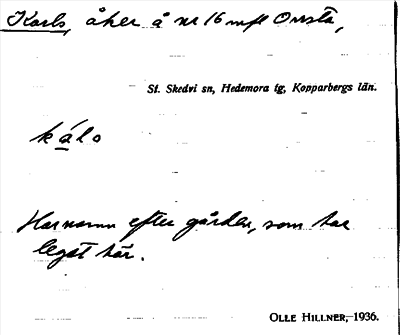 Karls, åker å nr 16 mfl Onsta,
St. Skedvi sn, Hedemora tg, Kopparbergs län.
kálo
Har namn efter gården, som har
legat här.
OLLE HILLNER, 1936.